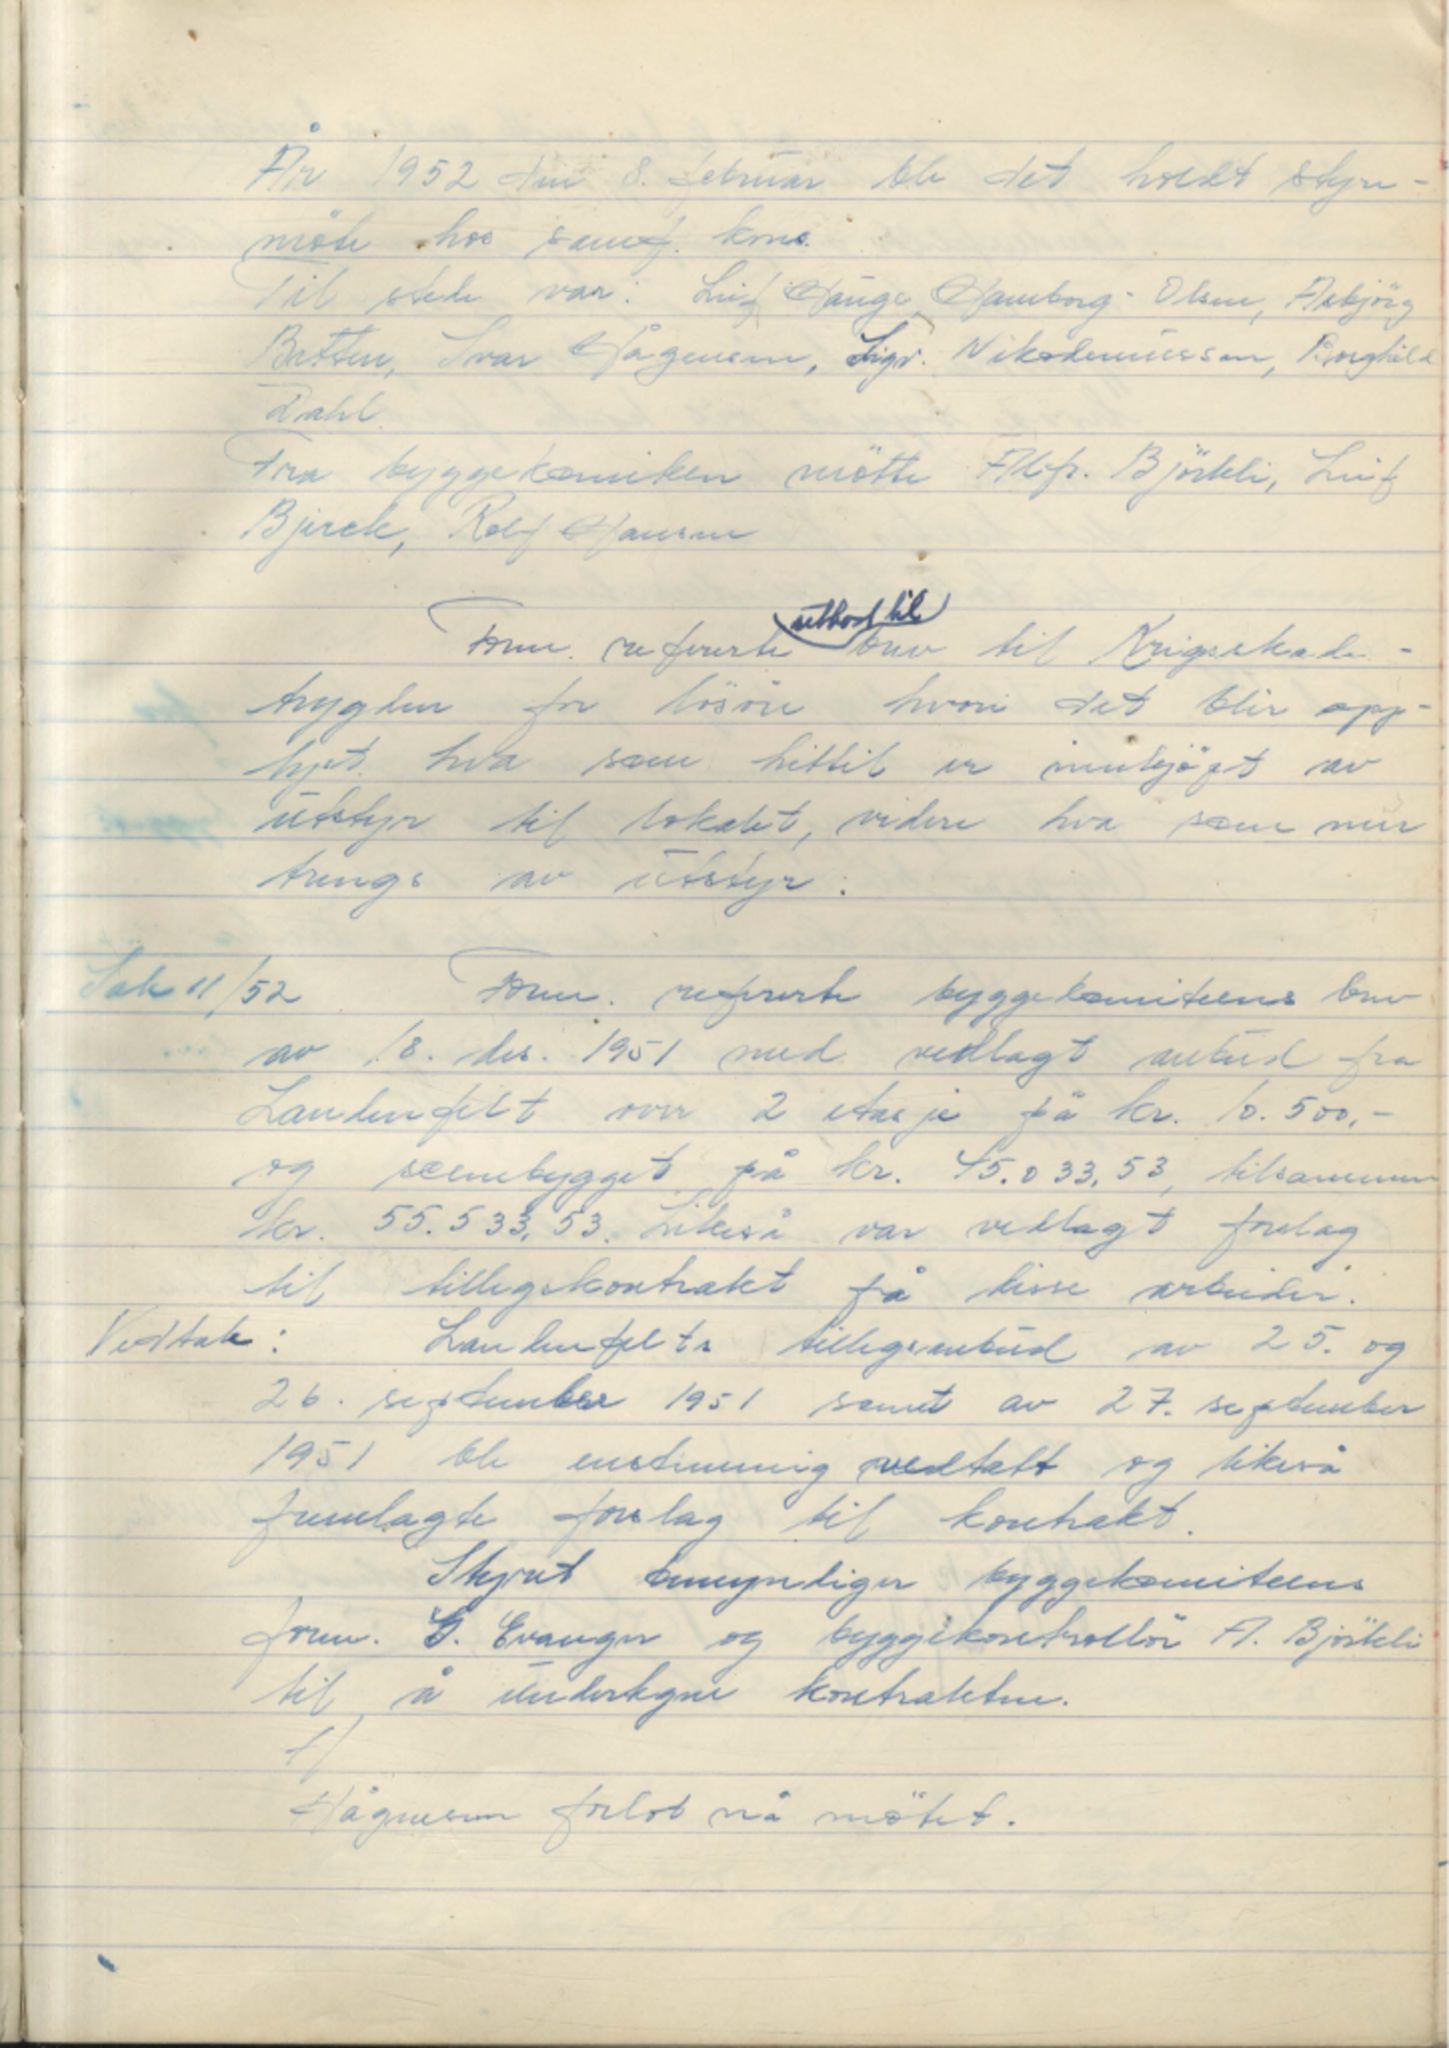 År 1952 den 8. februar ble det holdt styre-
møte hos samf. kons.
Til stede var: Leif Hauge, Hamborg-Olsen, Asbjörg
Batten, Ivar Hågensen, Sigv. Nikodemussen, Borghild
Dahl.
Fra byggekomiteen møtte Alf. Björkli, Leif
Bjerck, Rolf Hansen
utkast til
Form. refererte brev til Krigsskade-
trygden for lösöre hvori det blir opp-
lyst hva som hittil er innkjöpt av
utstyr til lokalet, videre hva som mer
trengs av utstyr.
Sak 11/52 Form. refererte byggekomiteens brev
av 18. des. 1951 med vedlagt anbud fra
Landenfelt over 2 etasje på kr. 10.500,-
og scenebygget på kr. 45.033,53, tilsammen
kr. 55.533,53. Likeså var vedlagt forslag
til tillegskontrakt på disse arbeider.
Vedtak: Landenfelts tillegsanbud av 25. og
26. september 1951 samt av 27. september
1951 ble enstemmig vedtatt og likeså
fremlagte forslag til kontrakt.
Styret bemyndiger byggekomiteens
form. G. Evanger og byggekontrollör A. Björkli
til å undertegne kontrakten.
Hågensen forlot nå møtet.